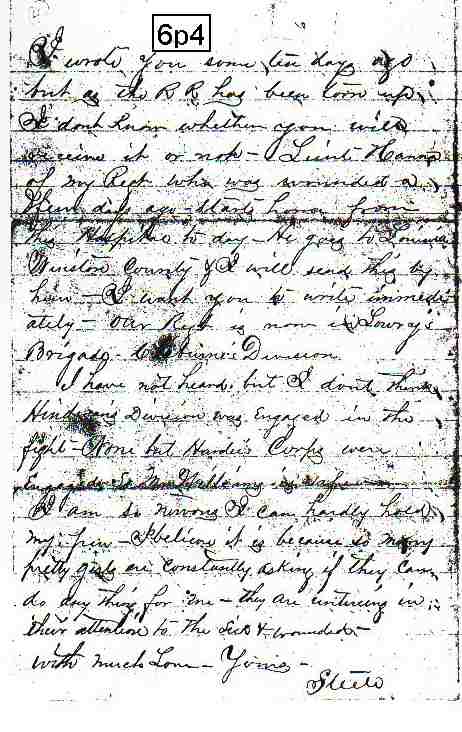 6p4
I wrote you some ten days ago
but as the R R has been torn up
I dont know whether you will
receive it or not - Lieut
of my Regt who was wounded a
few days ago - starts home from
this Hospital to day - He goes to
Winston County & I will send this by
him - I want you to write immedi
ately - Our Regt is now in Lowry's
Brigade - Cleburne's Division
I have not heard, but I dont think
Hindmans Division was Engaged in the
fight - None but Hardee's Corps were
Engaged - So is safe -
I am so nervous I can hardly hold
my pen - I believe it is because so many
pretty girls are constantly asking if they can
do any thing for me - they are untiring in
their attention to the sick & wounded -
With much Love - Yours -